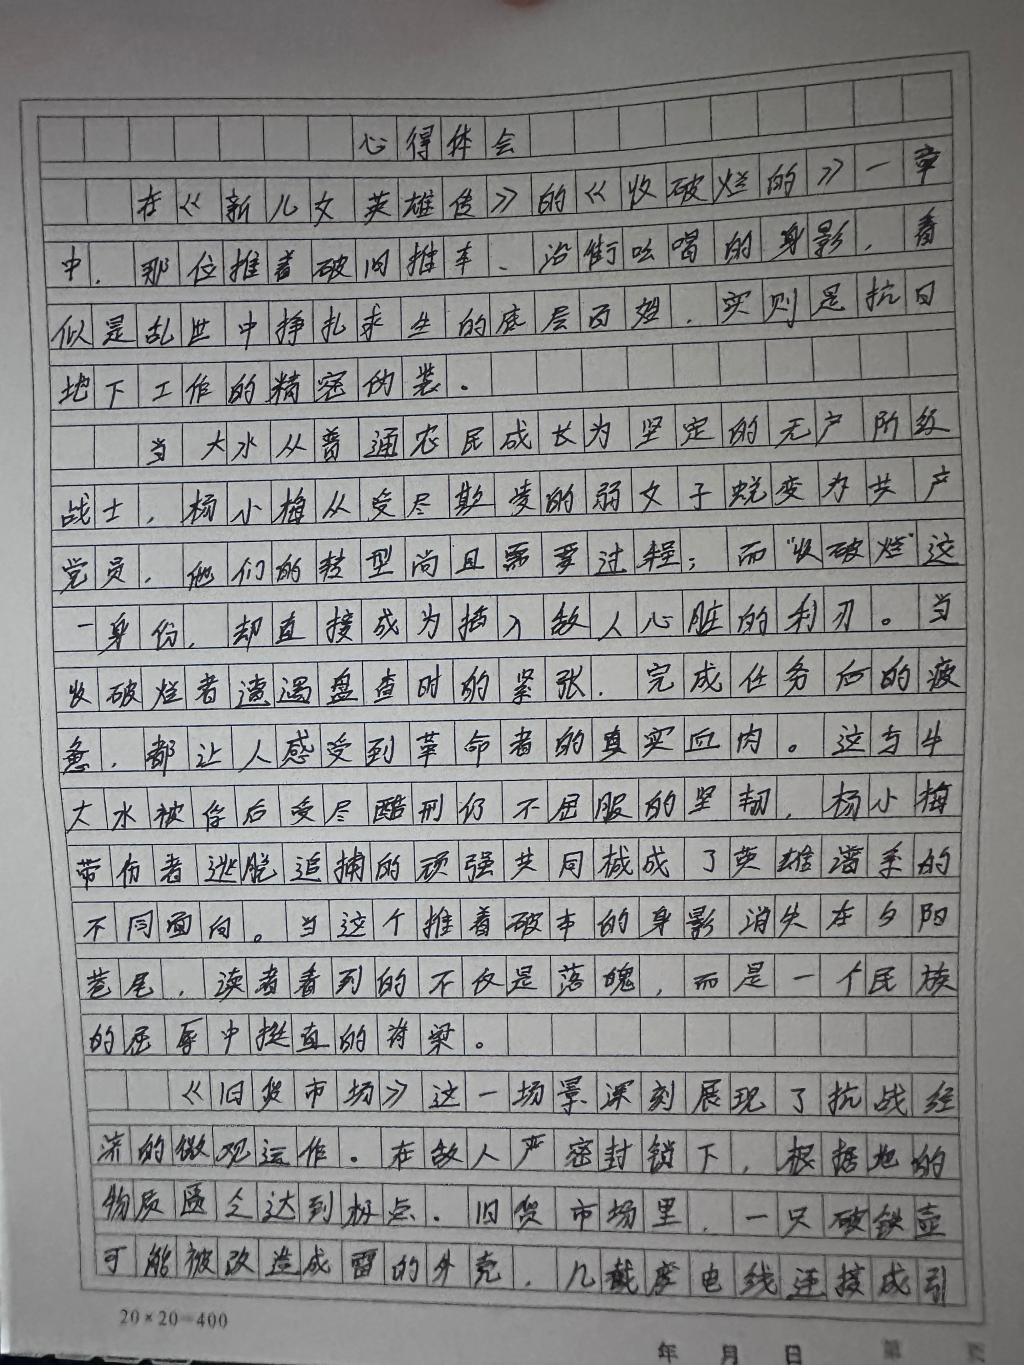 心得体会
在《新儿女英雄传》的《收破烂的》一章
中，那位推着破旧推车、沿街吆喝的身影，看
似是乱世中挣扎求生的底层百姓，实则是抗日
地下工作的精密伪装。
当大水从普通农民成长为坚定的无产阶级
战士，杨小梅从受尽欺凌的弱女子蜕变为共产
党员，他们的转型尚且需要过程；而"收破烂"这
一身份，却直接成为插入敌人心脏的利刃。当
收破烂者遭遇盘查时的紧张，完成任务后的疲
惫，都让人感受到革命者的真实血肉。这与牛
大水被俘后受尽酷刑仍不屈服的坚韧，杨小梅
带伤者逃脱追捕的顽强共同构成了英雄谱系的
不同面向。当这个推着破车的身影消失在夕阳
巷尾，读者看到的不仅是落魄，而是一个民族
的屈辱中挺直的脊梁。
《旧货市场》这一场景深刻展现了抗战经
济的微观运作。在敌人严密封锁下，根据地的
物质匮乏达到极点。旧货市场里，一只破铁壶
可能被改造成雷的外壳，几截废电线连接成引
20×20=400
年 月 日 第 页